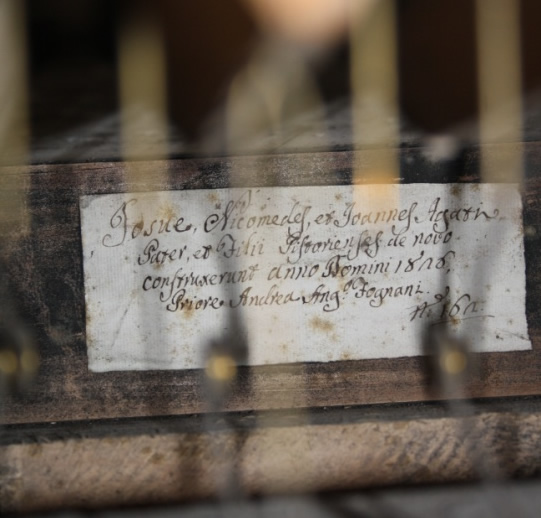 Josue, Nicomedes, et Joannes Agati
Pater, et Filii Pistorienses de novo
construxerunt anno Domini 1828,
Priore Andrea Ang.º Fognani.
n.º 162.